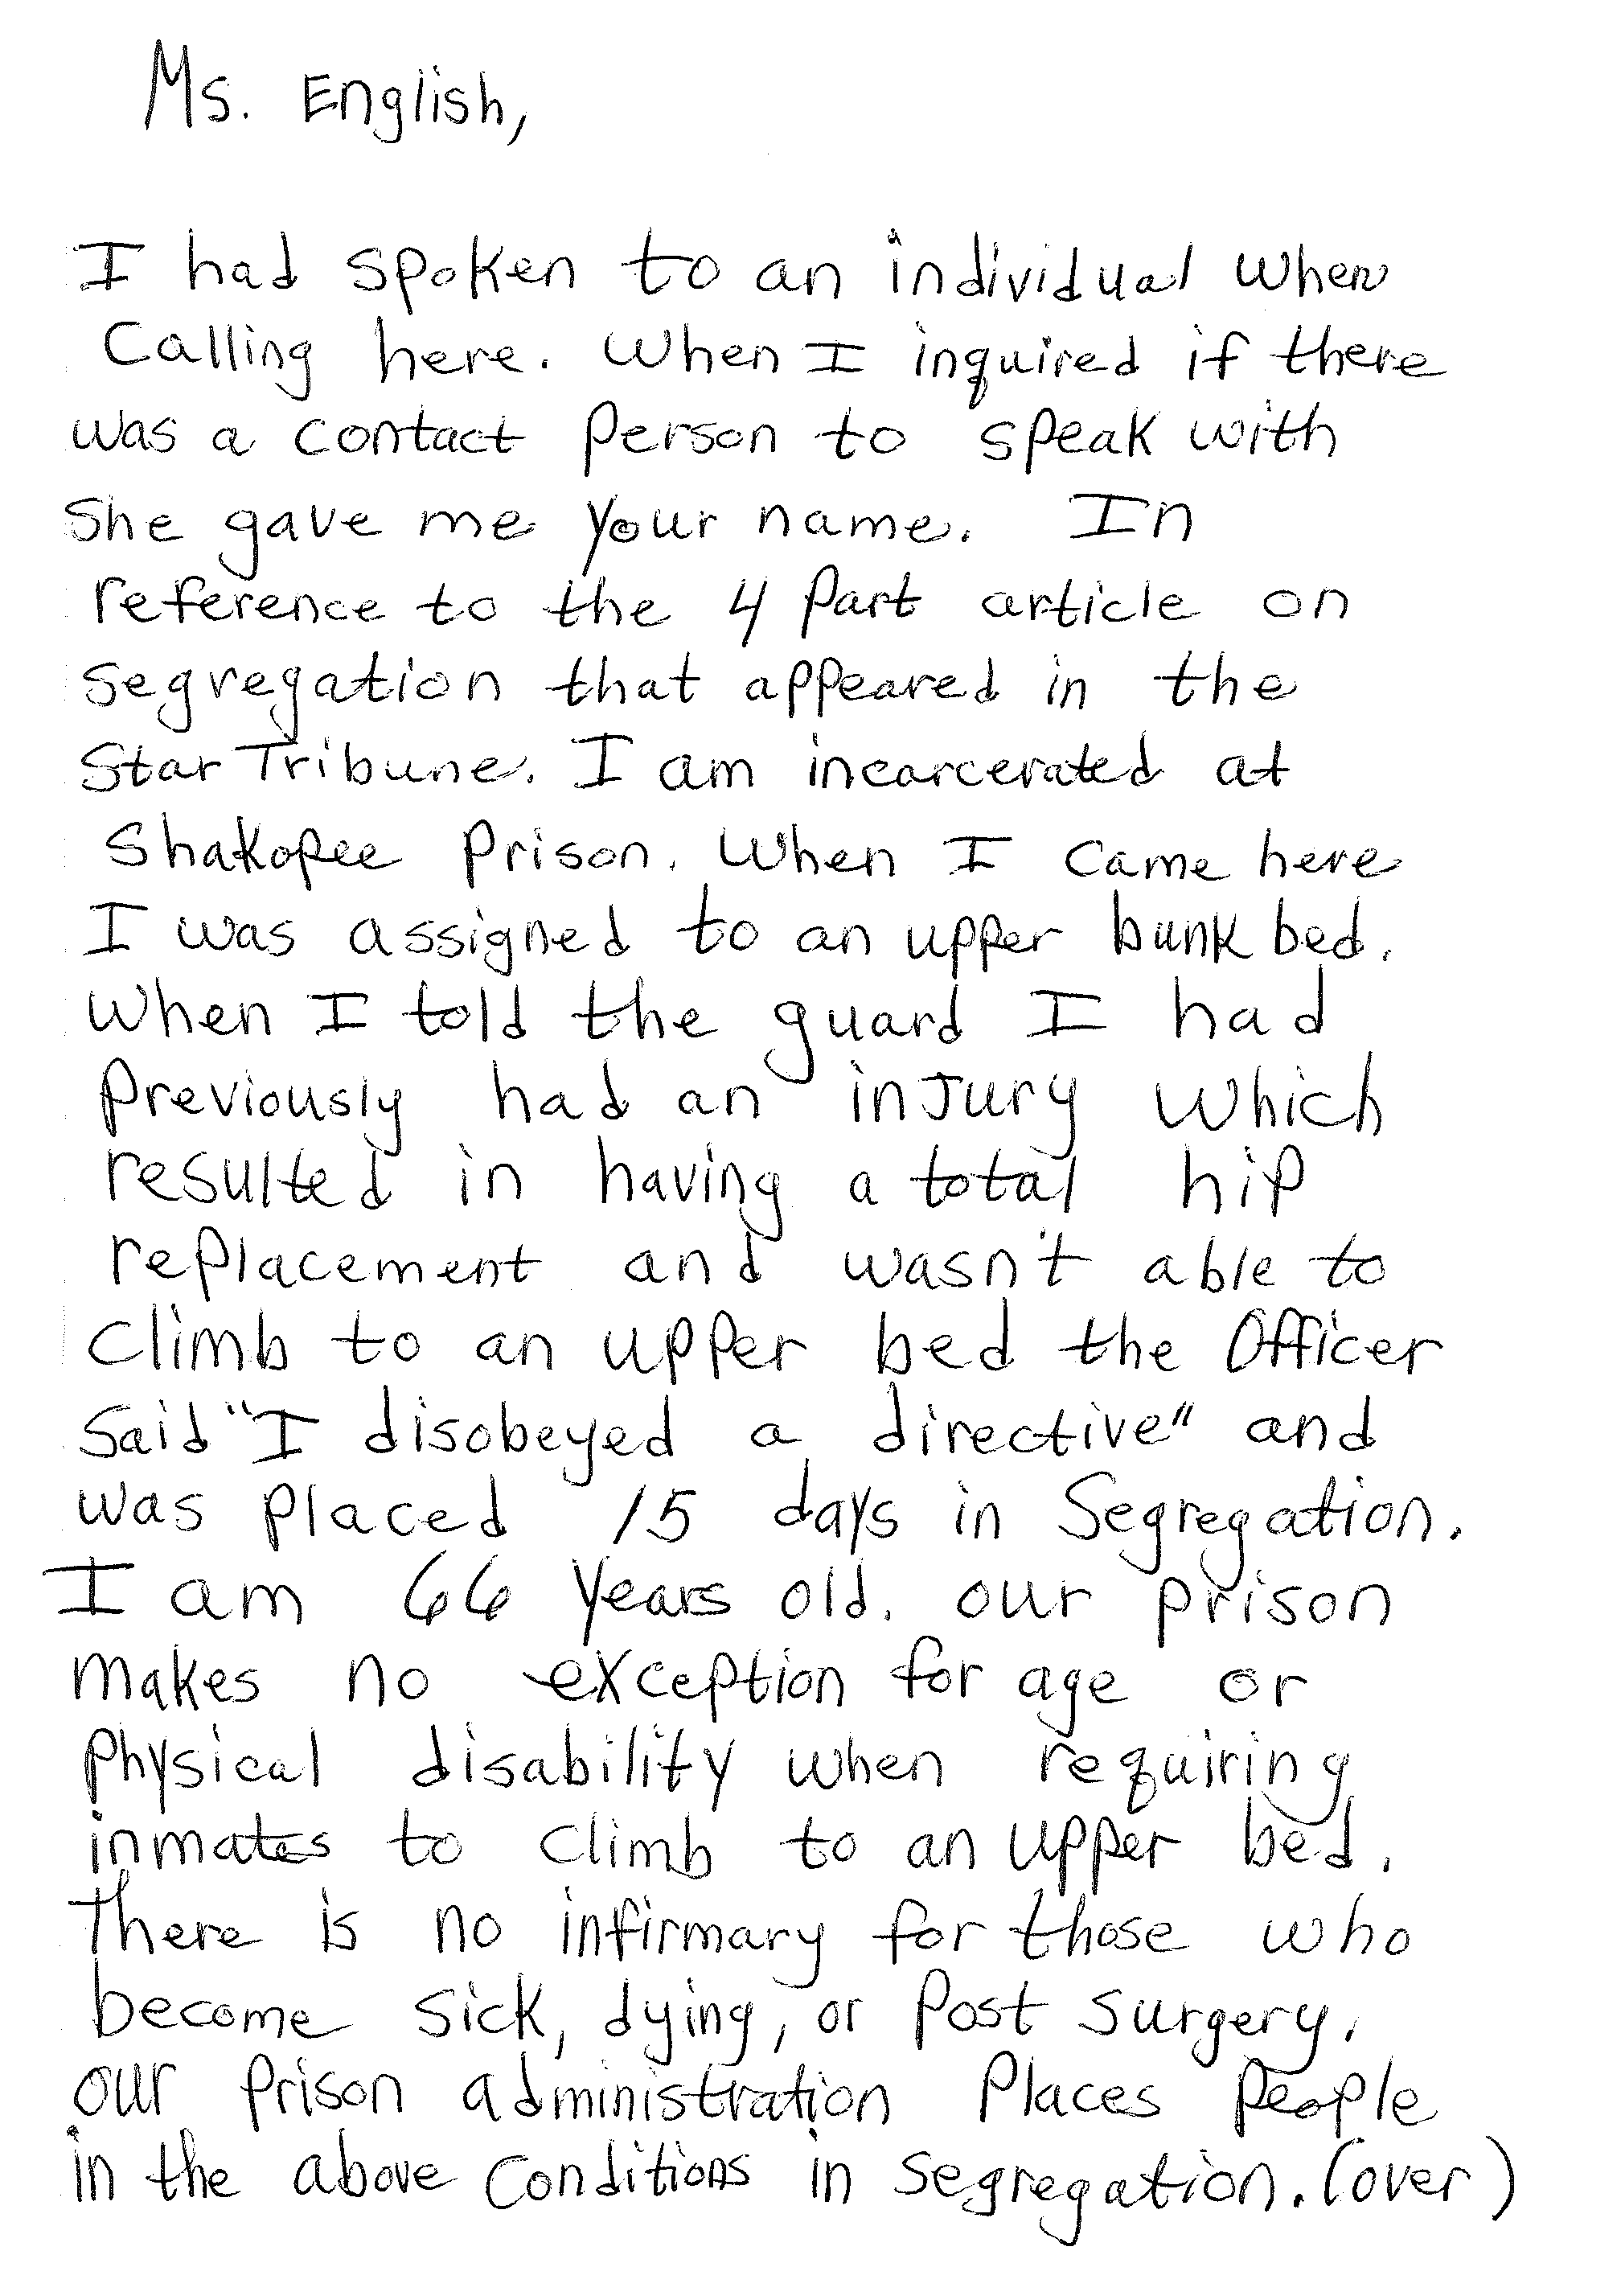 Ms. English,
I had spoken to an individual when
Calling here. When I inquired if there
was a contact person to speak with
She gave me your name. In
reference to the 4 Part article on
segregation that appeared in the
Star Tribune. I am incarcerated at
Shakopee Prison. When I came here
I was assigned to an upper bunk bed.
When I told the guard I had
Previously had an inJury which
resulted in having a total hip
replacement and wasn't able to
Climb to an upper bed the Officer
Said "I disobeyed a directive" and
was placed 15 days in Segregation.
I am 66 years old. our prison
makes no exception for age or
Physical disability when requiring
inmates to climb to an upper bed.
There is no infirmary for those who
become sick, dying, or Post surgery.
our prison administration Places People
in the above Conditions in segregation. (over)